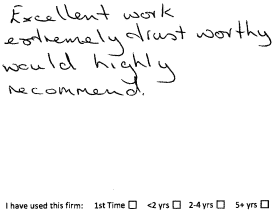 Excellent work
extremely trust worthy
would highly
recommend.
I have used this firm: 1st Time ☐ <2 yrs ☐ 2-4 yrs ☐ 5+ yrs ☐